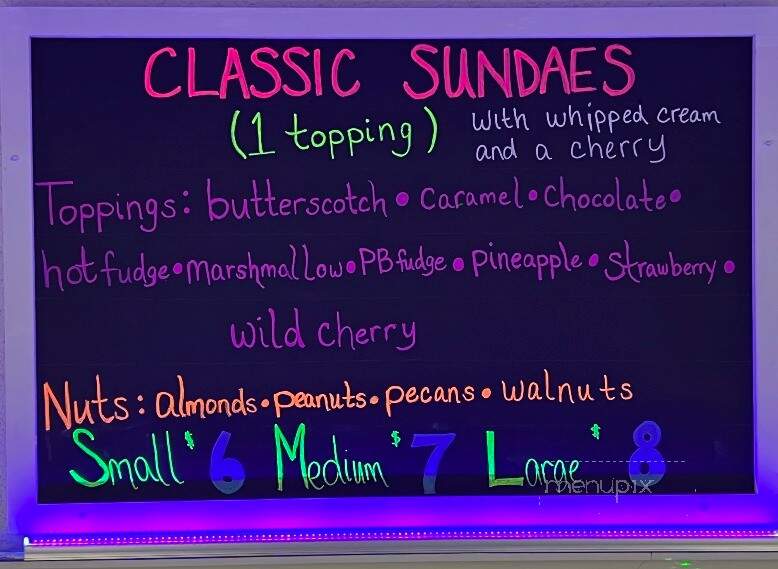 CLASSIC SUNDAES
(1 topping) with whipped cream
and a cherry
Toppings: butterscotch • caramel • chocolate •
hot fudge • marshmallow • PB fudge • pineapple • strawberry •
wild cherry
Nuts: almonds • peanuts • pecans • walnuts
Small $6 Medium $7 Large $8
menupix